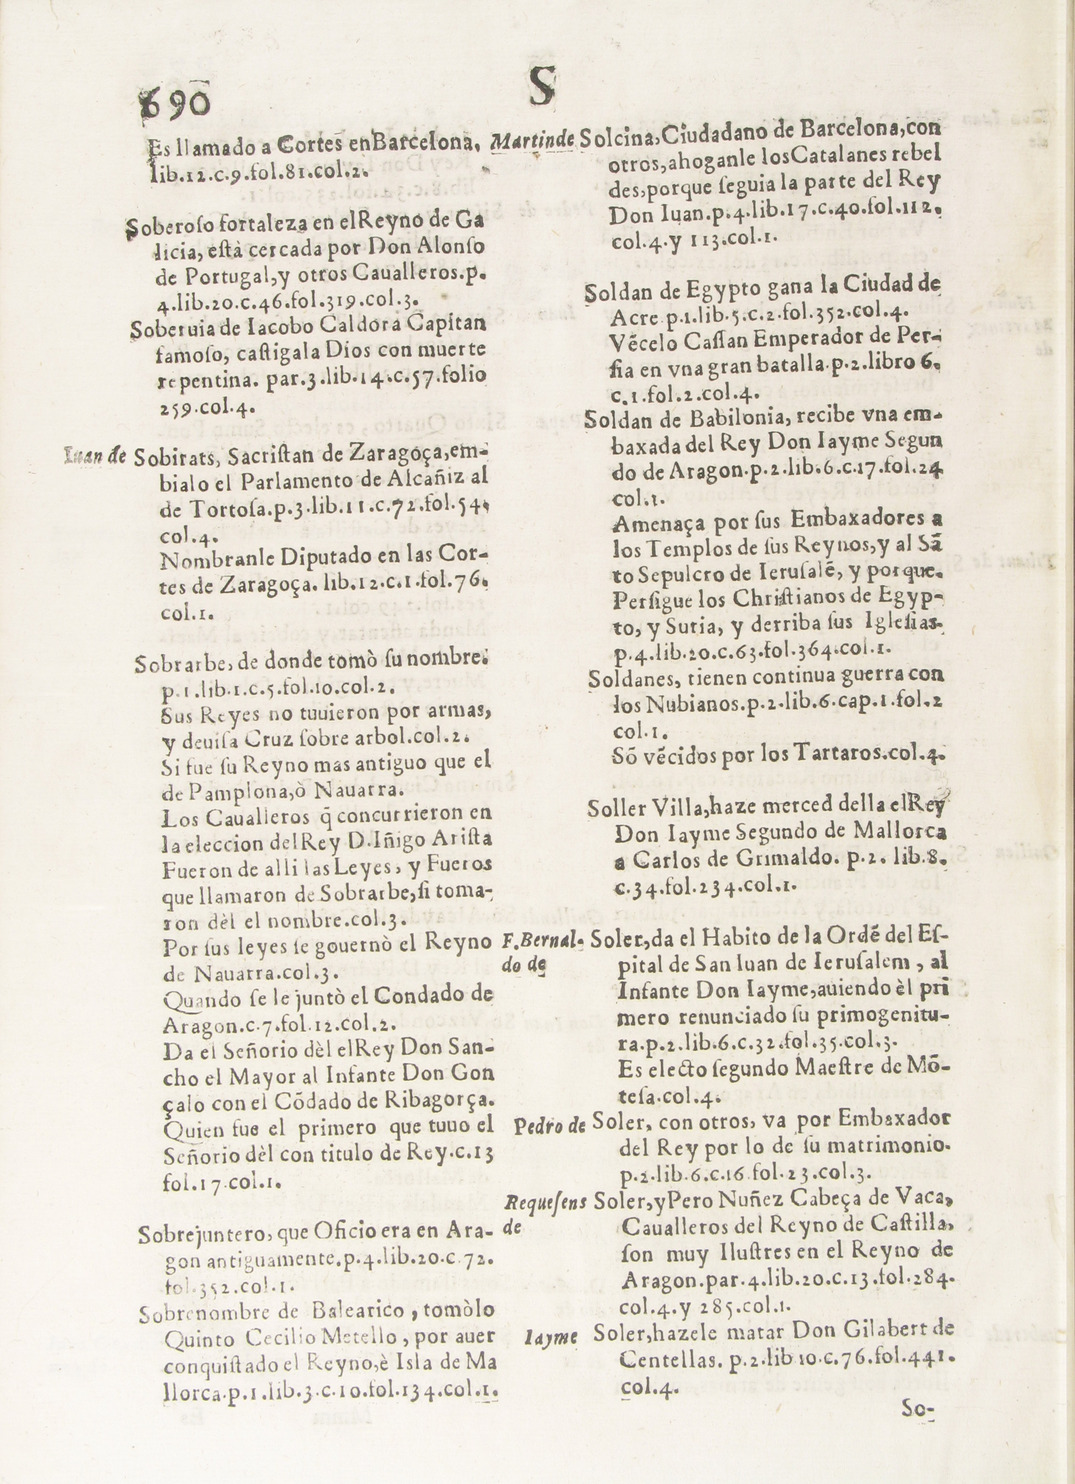 690
S
Es llamado a Cortes en Barcelona,
lib.12.c.9.fol.81.col.2.
Soberoſo fortaleza en el Reyno de Ga
licia, eſtà cercada por Don Alonſo
de Portugal, y otros Caualleros.p.
4.lib.20.c.46.fol.319.col.3.
Soberuia de Iacobo Caldora Capitan
famoſo, caſtigala Dios con muerte
repentina. par.3.lib.14.c.57.folio
259.col.4.
Iuan de Sobirats, Sacriſtan de Zaragoça, em-
bialo el Parlamento de Alcañiz al
de Tortoſa.p.3.lib.11.c.72.fol.54.
col.4.
Nombranle Diputado en las Cor-
tes de Zaragoça. lib.12.c.1.fol.76.
col.1.
Sobrarbe, de donde tomò ſu nombre.
p.1.lib.1.c.5.fol.10.col.2.
Sus Reyes no tuuieron por armas,
y deuiſa Cruz ſobre arbol.col.2.
Si fue ſu Reyno mas antiguo que el
de Pamplona, ò Nauarra.
Los Caualleros q̃ concurrieron en
la eleccion del Rey D. Iñigo Ariſta
Fueron de alli las Leyes, y Fueros
que llamaron de Sobrarbe, ſi toma-
ron dèl el nombre.col.3.
Por ſus leyes ſe gouernò el Reyno
de Nauarra.col.3.
Quando ſe le juntò el Condado de
Aragon.c.7.fol.12.col.2.
Da el Señorio dèl el Rey Don San-
cho el Mayor al Infante Don Gon
çalo con el Cõdado de Ribagorça.
Quien fue el primero que tuuo el
Señorio dèl con titulo de Rey.c.13
fol.17.col.1.
Sobrejuntero, que Oficio era en Ara-
gon antiguamente.p.4.lib.20.c.72.
fol.352.col.1.
Sobrenombre de Balearico, tomòlo
Quinto Cecilio Metello, por auer
conquiſtado el Reyno, è Isla de Ma
llorca.p.1.lib.3.c.10.fol.134.col.1.
Martin de Solcina, Ciudadano de Barcelona, con
otros, ahoganle los Catalanes rebel
des, porque ſeguia la parte del Rey
Don Iuan.p.4.lib.17.c.40.fol.112.
col.4.y 113.col.1.
Soldan de Egypto gana la Ciudad de
Acre p.1.lib.5.c.2.fol.352.col.4.
Vẽcelo Caſſan Emperador de Per-
ſia en vna gran batalla.p.2.libro 6.
c.1.fol.2.col.4.
Soldan de Babilonia, recibe vna em-
baxada del Rey Don Iayme Segun
do de Aragon.p.2.lib.6.c.17.fol.24
col.1.
Amenaça por ſus Embaxadores a
los Templos de ſus Reynos, y al Sã
to Sepulcro de Ieruſalẽ, y porque.
Perſigue los Chriſtianos de Egyp-
to, y Suria, y derriba ſus Igleſias.
p.4.lib.20.c.63.fol.364.col.1.
Soldanes, tienen continua guerra con
los Nubianos.p.2.lib.6.cap.1.fol.2
col.1.
Sõ vẽcidos por los Tartaros.col.4.
Soller Villa, haze merced della el Rey
Don Iayme Segundo de Mallorca
a Carlos de Grimaldo. p.2. lib.8.
c.34.fol.234.col.1.
F. Bernal- Soler, da el Habito de la Ordẽ del Eſ-
do de pital de San Iuan de Ieruſalem, al
Infante Don Iayme, auiendo èl pri
mero renunciado ſu primogenitu-
ra.p.2.lib.6.c.32.fol.35.col.3.
Es electo ſegundo Maeſtre de Mõ-
teſa.col.4.
Pedro de Soler, con otros, va por Embaxador
del Rey por lo de ſu matrimonio.
p.2.lib.6.c.16 fol.23.col.3.
Requeſens Soler, y Pero Nuñez Cabeça de Vaca,
de Caualleros del Reyno de Caſtilla,
ſon muy Iluſtres en el Reyno de
Aragon.par.4.lib.20.c.13.fol.284.
col.4.y 285.col.1.
Iayme Soler, hazele matar Don Gilabert de
Centellas. p.2.lib 10.c.76.fol.441.
col.4.
So-